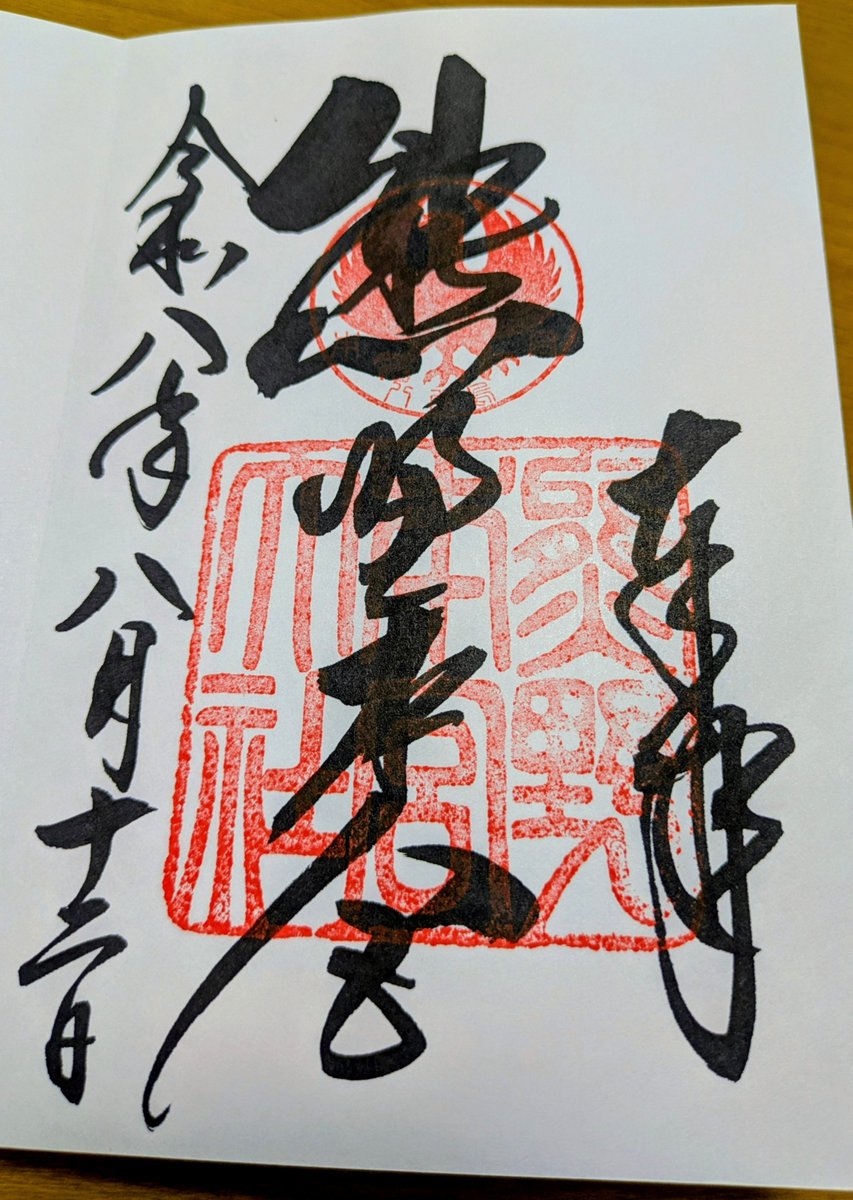 奉拝
熊野本宮
熊野本宮大社
令和八年八月十二日